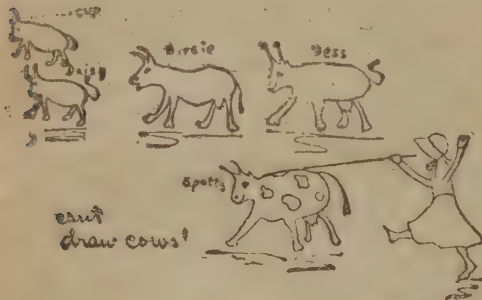 Daisy
Birdie
Bess
Spotty
can't
draw cows!